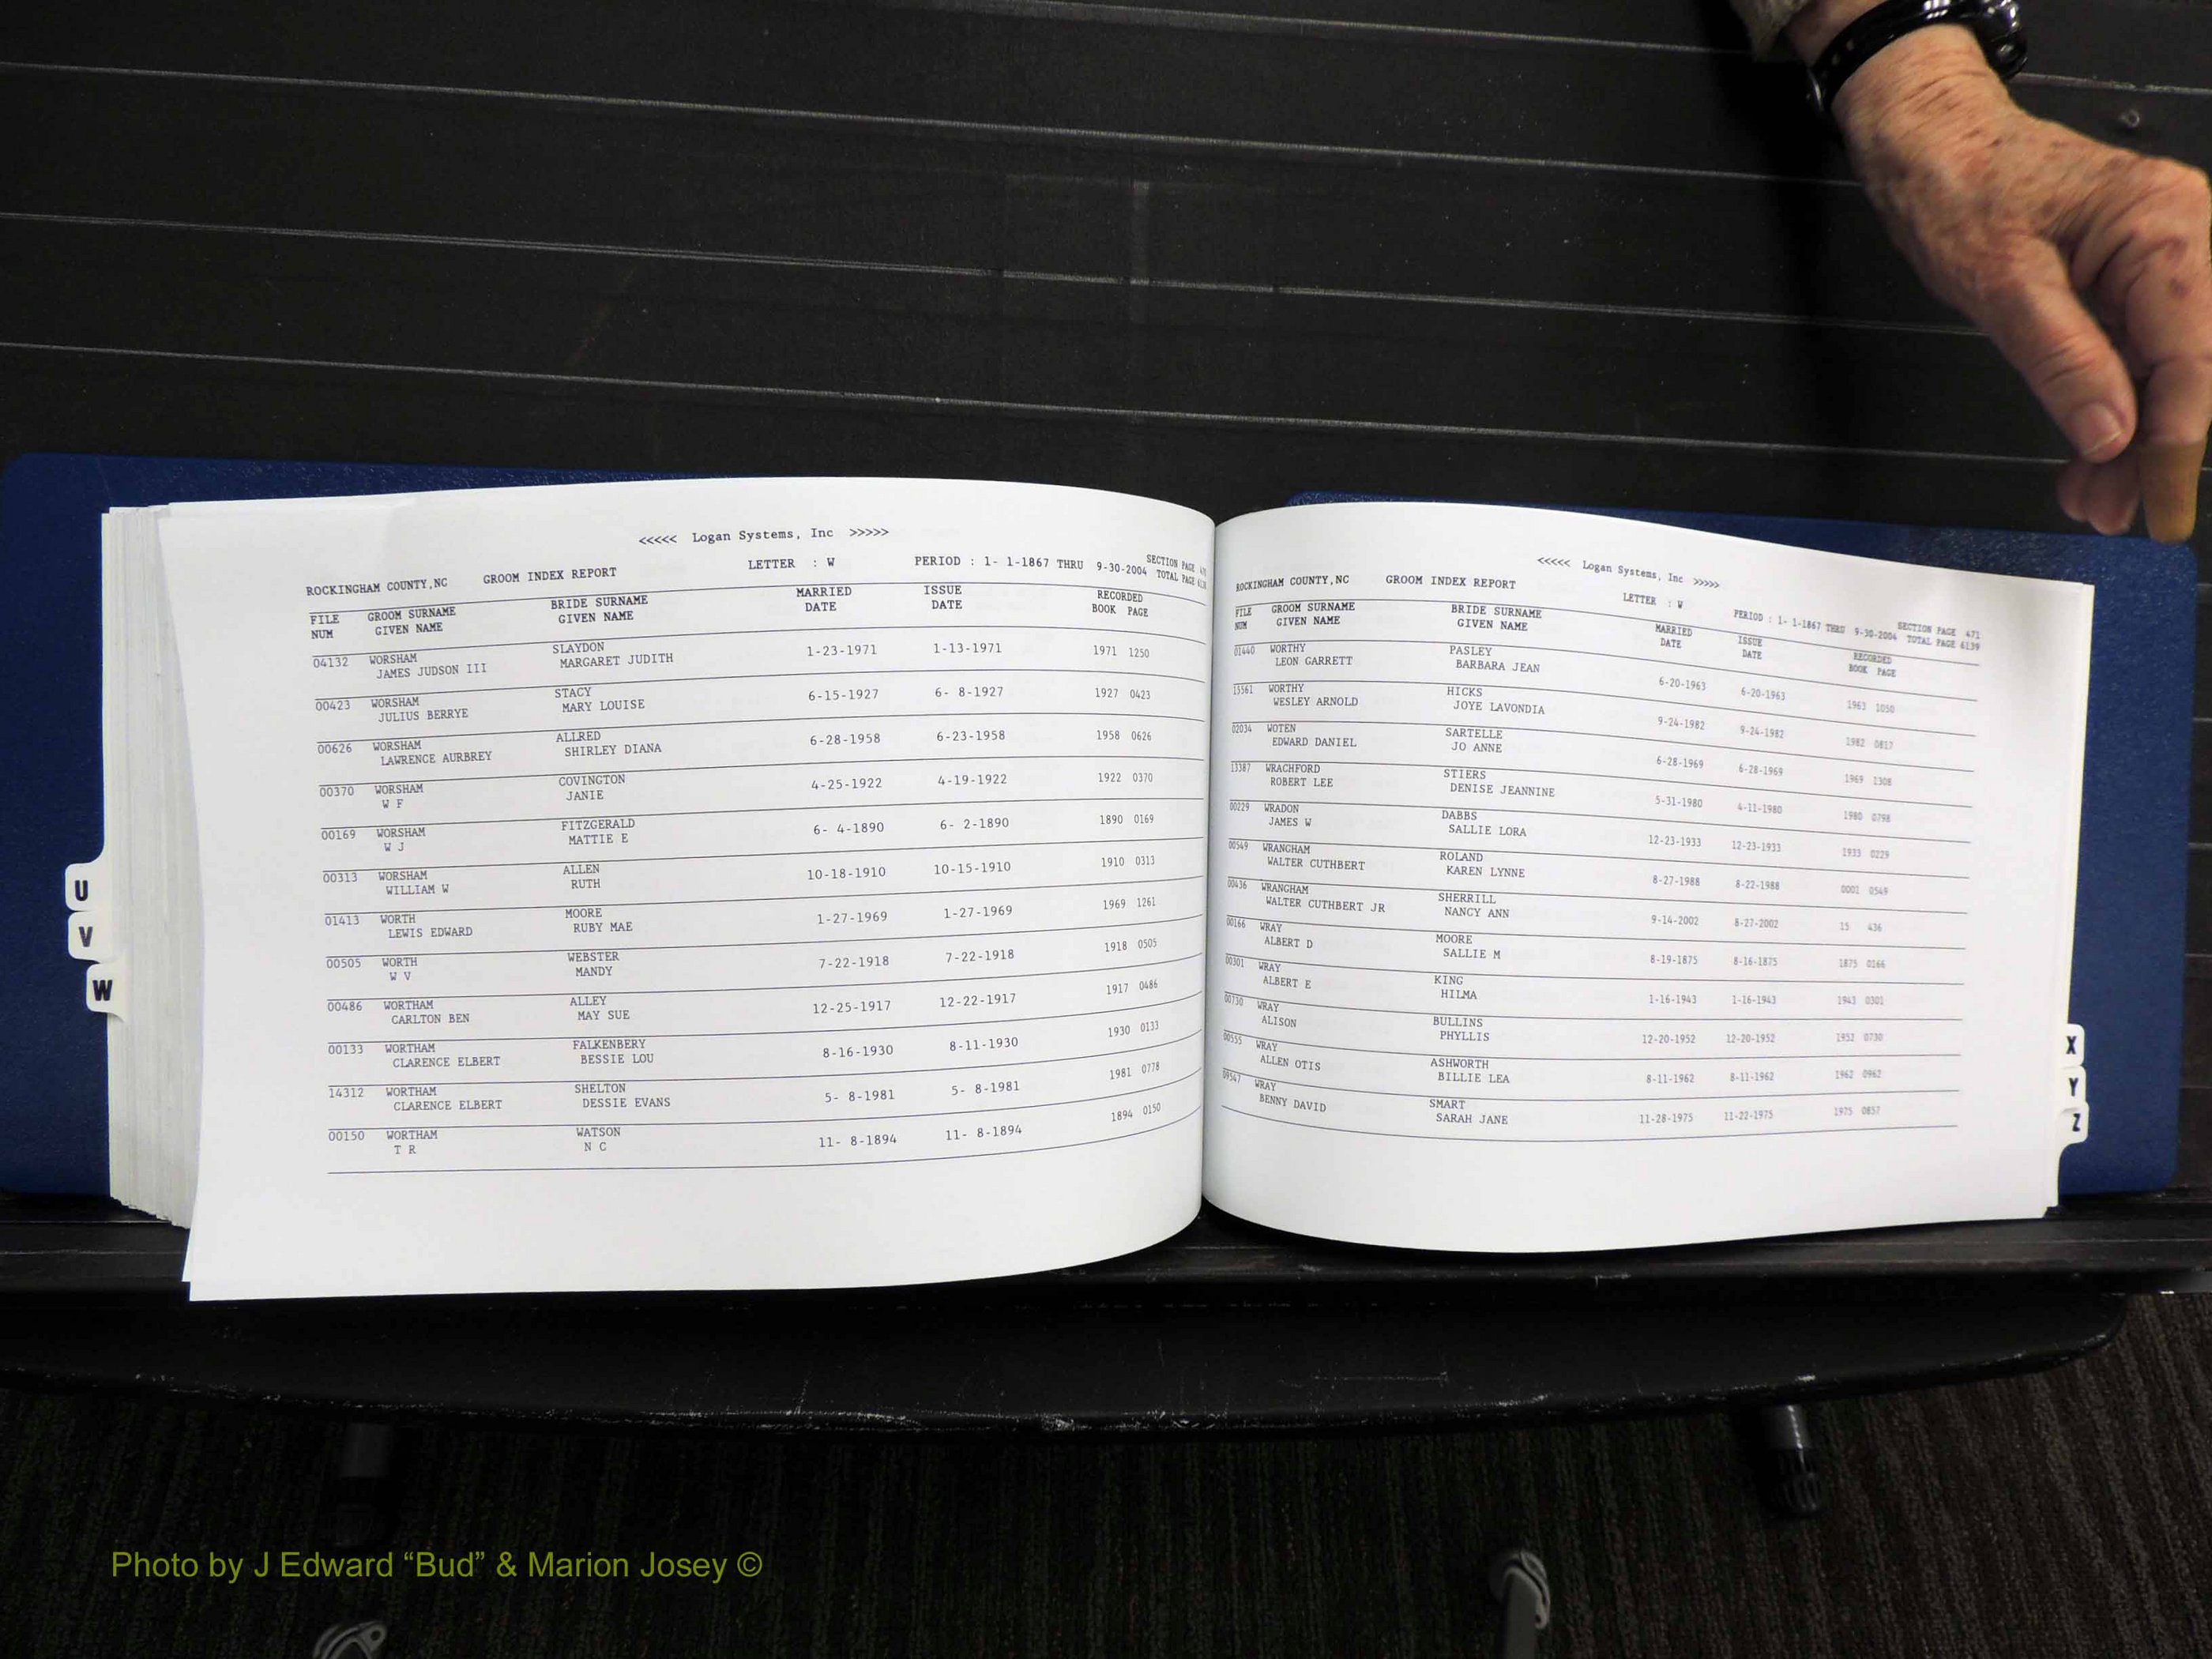 <<<<< Logan Systems, Inc >>>>>
ROCKINGHAM COUNTY,NC GROOM INDEX REPORT LETTER : W PERIOD : 1- 1-1867 THRU 9-30-2004 SECTION PAGE
TOTAL PAGE
FILE GROOM SURNAME BRIDE SURNAME MARRIED ISSUE RECORDED
NUM GIVEN NAME GIVEN NAME DATE DATE BOOK PAGE
04132 WORSHAM SLAYDON 1-23-1971 1-13-1971 1971 1250
JAMES JUDSON III MARGARET JUDITH
00423 WORSHAM STACY 6-15-1927 6- 8-1927 1927 0423
JULIUS BERRYE MARY LOUISE
00626 WORSHAM ALLRED 6-28-1958 6-23-1958 1958 0626
LAWRENCE AURBREY SHIRLEY DIANA
00370 WORSHAM COVINGTON 4-25-1922 4-19-1922 1922 0370
W F JANIE
00169 WORSHAM FITZGERALD 6- 4-1890 6- 2-1890 1890 0169
W J MATTIE E
00313 WORSHAM ALLEN 10-18-1910 10-15-1910 1910 0313
WILLIAM W RUTH
01413 WORTH MOORE 1-27-1969 1-27-1969 1969 1261
LEWIS EDWARD RUBY MAE
00505 WORTH WEBSTER 7-22-1918 7-22-1918 1918 0505
W V MANDY
00486 WORTHAM ALLEY 12-25-1917 12-22-1917 1917 0486
CARLTON BEN MAY SUE
00133 WORTHAM FALKENBERY 8-16-1930 8-11-1930 1930 0133
CLARENCE ELBERT BESSIE LOU
14312 WORTHAM SHELTON 5- 8-1981 5- 8-1981 1981 0778
CLARENCE ELBERT DESSIE EVANS
00150 WORTHAM WATSON 11- 8-1894 11- 8-1894 1894 0150
T R N C
U
V
W
<<<<< Logan Systems, Inc >>>>>
ROCKINGHAM COUNTY,NC GROOM INDEX REPORT LETTER : W PERIOD : 1- 1-1867 THRU 9-30-2004 SECTION PAGE 471
TOTAL PAGE 6139
FILE GROOM SURNAME BRIDE SURNAME MARRIED ISSUE RECORDED
NUM GIVEN NAME GIVEN NAME DATE DATE BOOK PAGE
01440 WORTHY PASLEY 6-20-1963 6-20-1963 1963 1050
LEON GARRETT BARBARA JEAN
15561 WORTHY HICKS 9-24-1982 9-24-1982 1982 0817
WESLEY ARNOLD JOYE LAVONDIA
02034 WOTEN SARTELLE 6-28-1969 6-28-1969 1969 1308
EDWARD DANIEL JO ANNE
13387 WRACHFORD STIERS 5-31-1980 4-11-1980 1980 0798
ROBERT LEE DENISE JEANNINE
00229 WRADON DABBS 12-23-1933 12-23-1933 1933 0229
JAMES W SALLIE LORA
00549 WRANGHAM ROLAND 8-27-1988 8-22-1988 0001 0549
WALTER CUTHBERT KAREN LYNNE
00436 WRANGHAM SHERRILL 9-14-2002 8-27-2002 15 436
WALTER CUTHBERT JR NANCY ANN
00166 WRAY MOORE 8-19-1875 8-16-1875 1875 0166
ALBERT D SALLIE M
00301 WRAY KING 1-16-1943 1-16-1943 1943 0301
ALBERT E HILMA
00730 WRAY BULLINS 12-20-1952 12-20-1952 1952 0730
ALISON PHYLLIS
00555 WRAY ASHWORTH 8-11-1962 8-11-1962 1962 0962
ALLEN OTIS BILLIE LEA
09547 WRAY SMART 11-28-1975 11-22-1975 1975 0857
BENNY DAVID SARAH JANE
X
Y
Z
Photo by J Edward “Bud” & Marion Josey ©